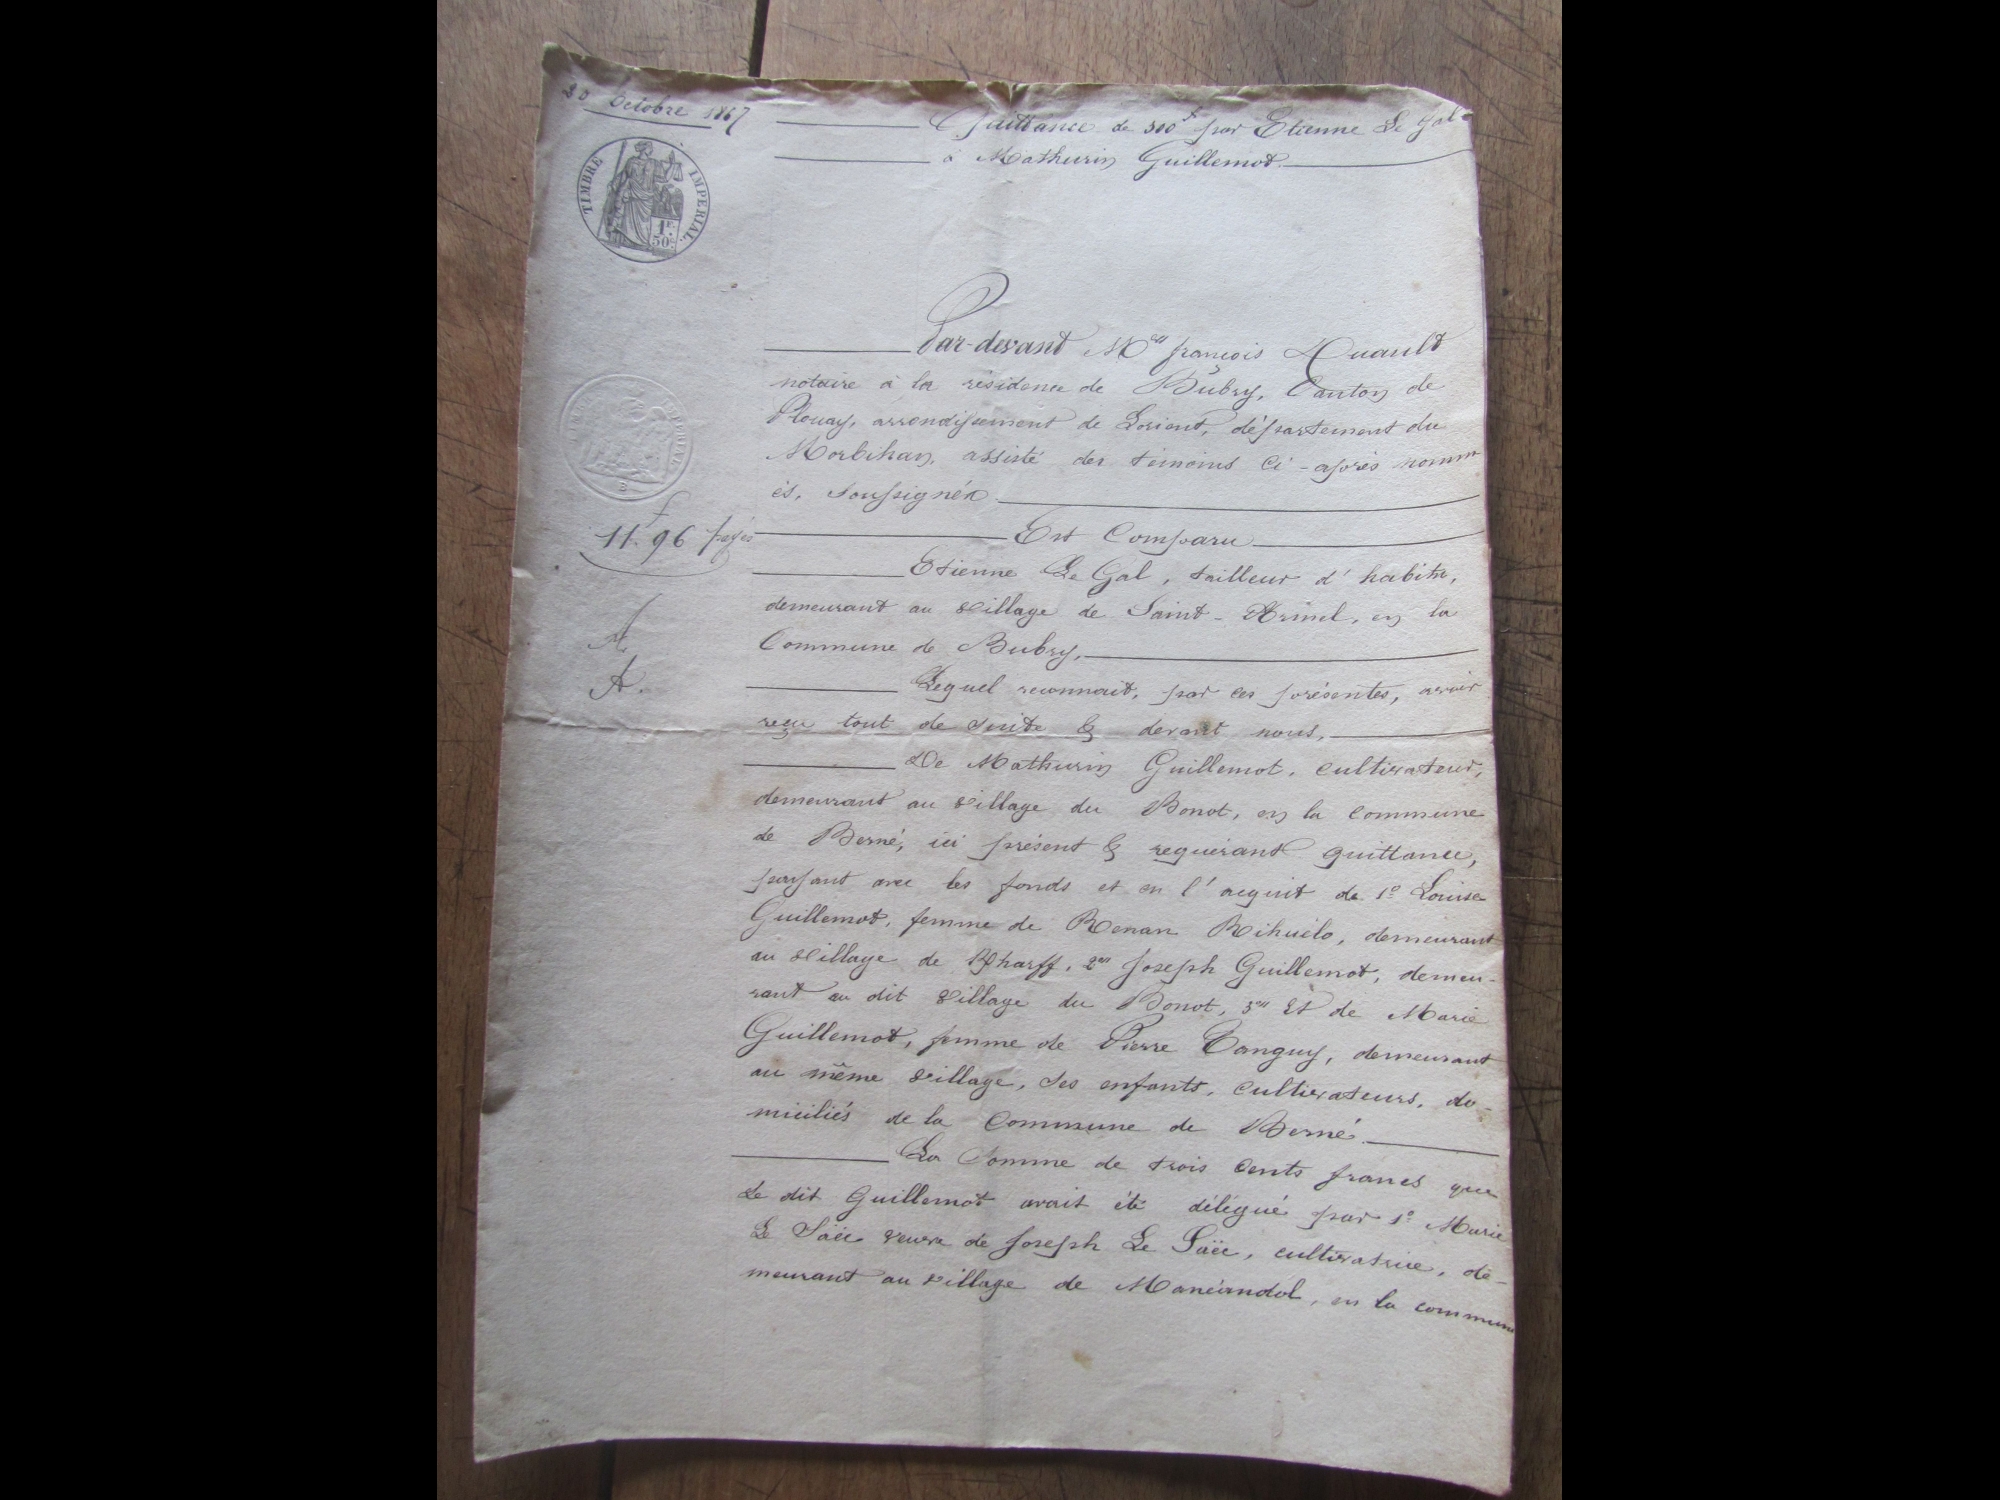 20 Octobre 1867
Quittance de 300f par Etienne Le Gal
à Mathurin Guillemot.
TIMBRE IMPERIAL.
1F.
50C.
Par-devant Me françois
notaire à la résidence de Bubry, Canton de
Plouay, arrondissement de Lorient, département du
Morbihan, assisté des témoins ci-après nomm
és, soussignés
11f 96 payés
Est Comparu
Etienne Le Gal, tailleur d'habits,
demeurant au village de Saint-Armel, en la
Commune de Bubry,
Lequel reconnait, par ces présentes, avoir
reçu tout de suite & devant nous,
De Mathurin Guillemot, cultivateur,
demeurant au village du Bonot, en la commune
de Berné, ici présent & requérant quittance,
payant avec les fonds et en l'acquit de 1o Louise
Guillemot, femme de Renan Rihuelo, demeurant
au village de 2en Joseph Guillemot, demeu-
rant au dit village du Bonot, 3en Et de Marie
Guillemot, femme de Pierre Tanguy, demeurant
au même village, ses enfants, cultivateurs, do-
miciliés de la Commune de Berné.
La somme de trois cents francs que
Le dit Guillemot avait été délégué par 1o Marie
Le Säec veuve de Joseph Le Säec, cultivatrice, de-
meurant au village de en la commune